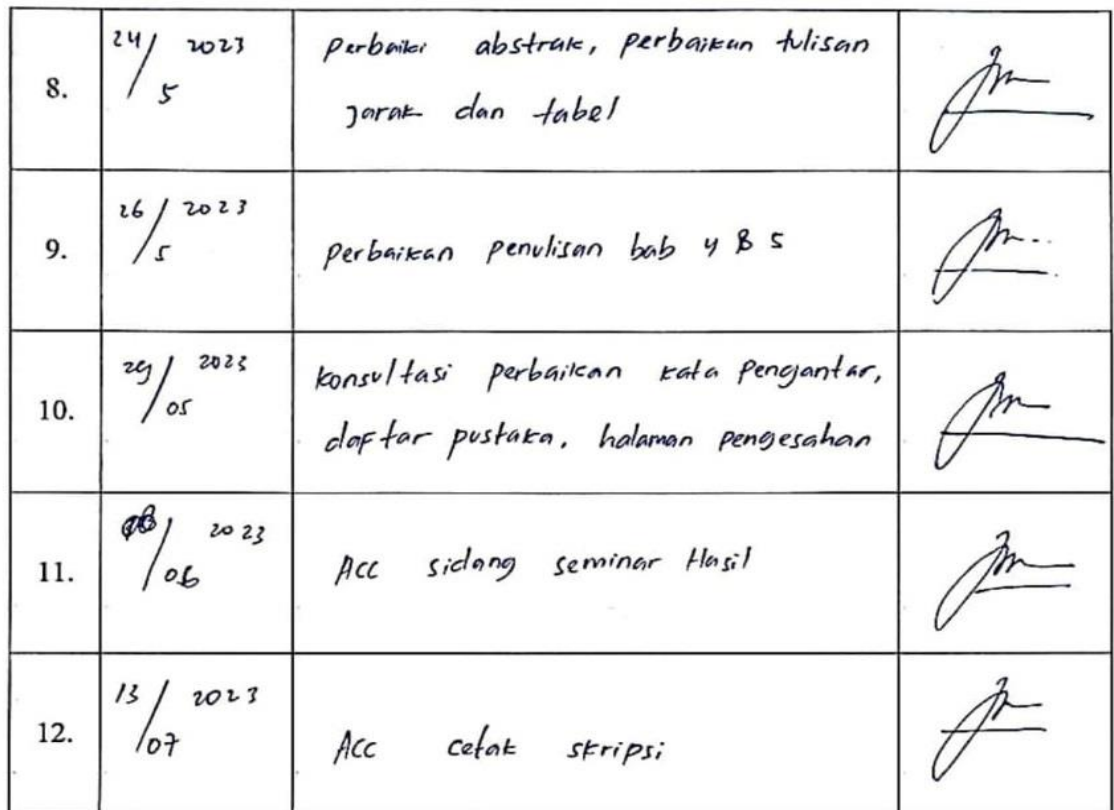 8.
24/5 2023
Perbaiki abstrak, perbaikan tulisan
Jarak dan tabel
9.
26/5 2023
Perbaikan penulisan bab 4 & 5
10.
29/05 2023
Konsultasi perbaikan kata pengantar,
daftar pustaka, halaman pengesahan
11.
/06 2023
Acc sidang seminar Hasil
12.
13/07 2023
Acc cetak skripsi